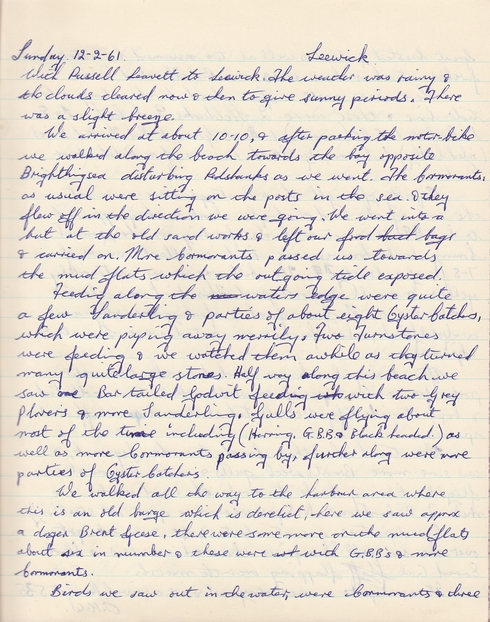 Sunday 12-2-61. Leewick
With Russell Leavett to Leewick. The weather was rainy &
the clouds cleared now & then to give sunny periods. There
was a slight breeze.
We arrived at about 10-10, & after parking the motor-bike
we walked along the beach towards the bay opposite
Brightlingsea disturbing Redshanks as we went. The Cormorants
as usual were sitting on the posts in the sea. & they
flew off in the direction we were going. We went into a
hut at the old sand works & left our food bags
& carried on. More Cormorants passed us towards
the mud flats which the outgoing tide exposed.
Feeding along the waters edge were quite
a few Sanderling & parties of about eight Oyster Catchers,
which were piping away merrily. Two Turnstones
were feeding & we watched them awhile as they turned
many quite large stones. Half way along this beach we
saw one Bar tailed Godwit feeding with two Grey
Plovers & more Sanderling. Gulls were flying about
most of the time including (Herring, G.B.B & Black headed.) as
well as more Cormorants passing by, further along were more
parties of Oyster Catchers.
We walked all the way to the harbour area where
this is an old barge which is derelict, here we saw approx
a dozen Brent Geese, there were some more on the mud flats
about six in number & these were with G.B.B's & more
Cormorants.
Birds we saw out in the water, were Cormorants & three